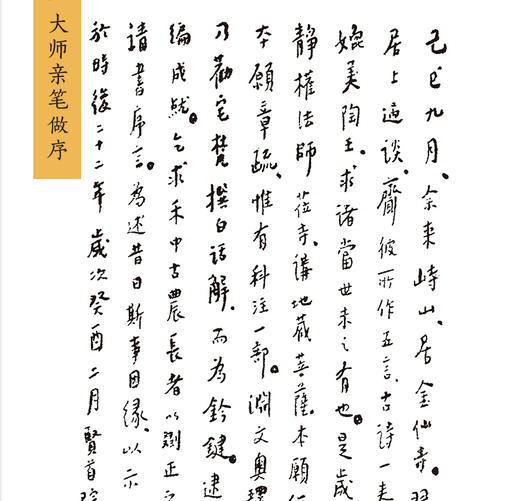 大师亲笔做序
己巳九月、余来峙山、居金仙寺。
居士過談、齎彼所作五言古詩一
媲美陶王。求諸當世未之有也。是歲
靜權法師莅寺、講地藏菩薩本願
本願章疏、惟有科注一部。淵文奧理
乃勸宅梵撰白話解、而為鈐鍵。逮
編成就。乞求禾中古農長者以刪正
請書序言。為述昔日斯事因緣、以示
於時後二十二年歲次癸酉二月賢首